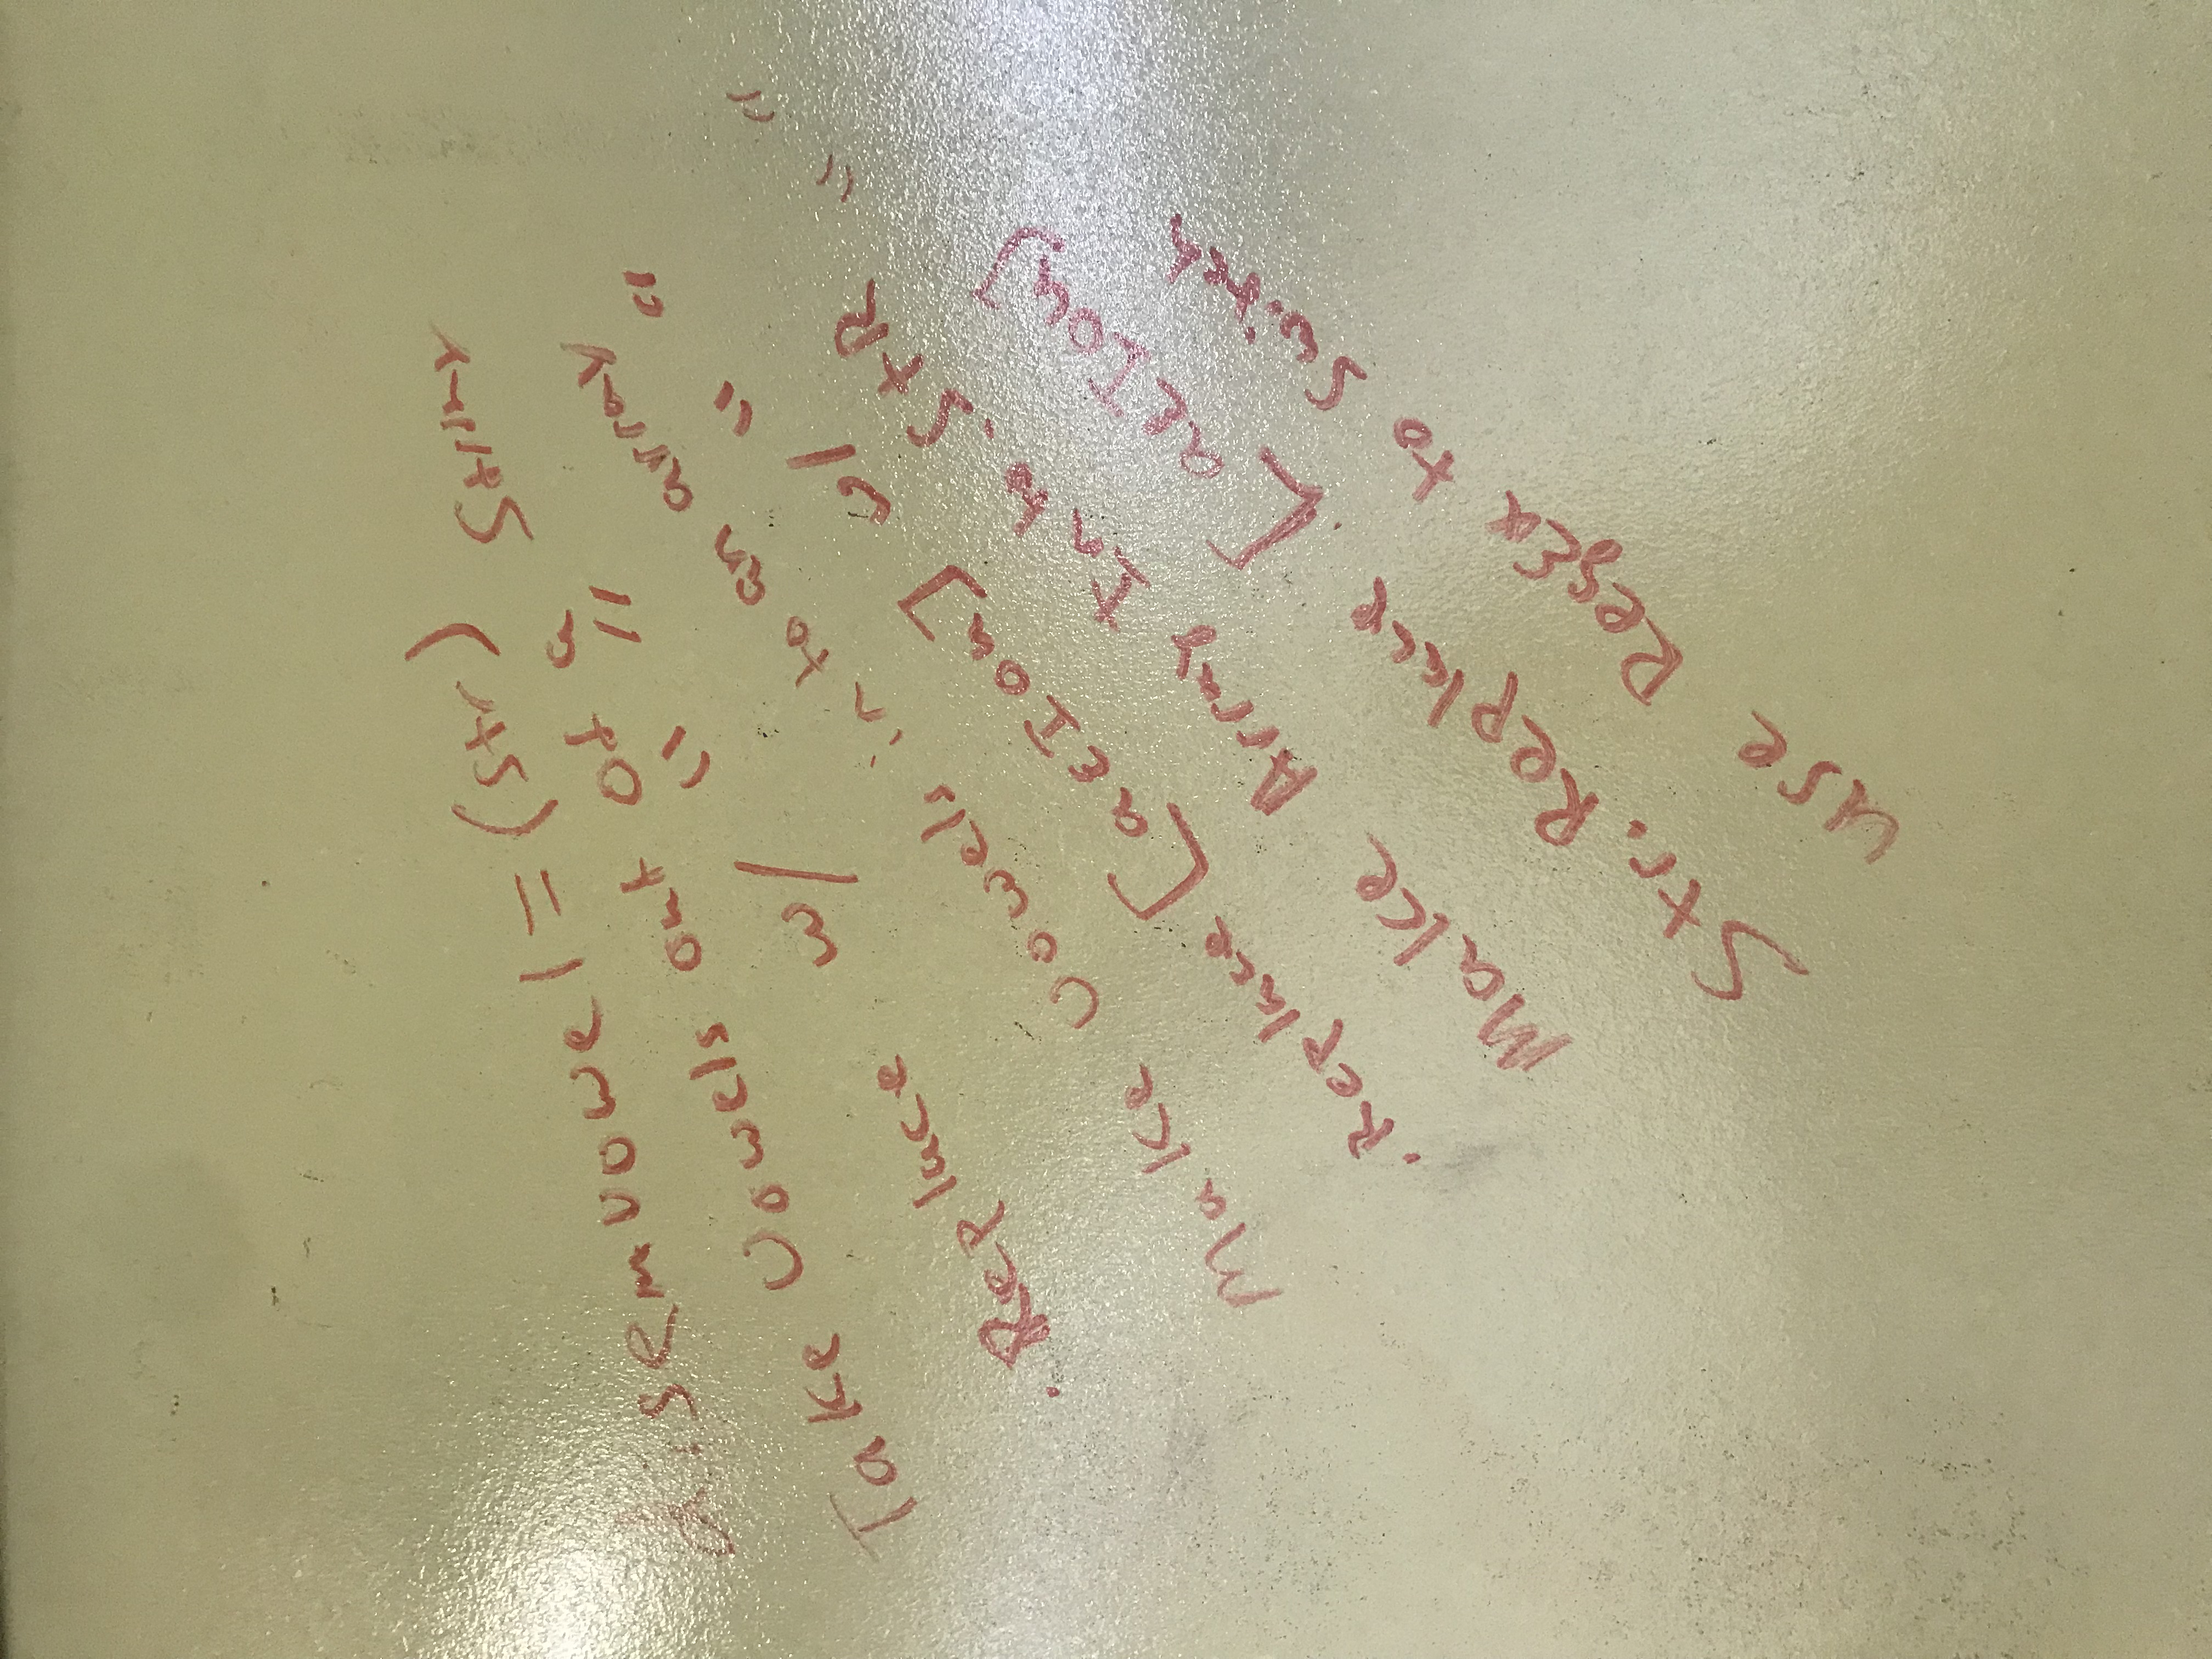 disemvowel = (str)
Take vowels out of a string
.Replace w/ " "
Make vowels in to an array
.Replace [aEIou] w/ " "
Make Array In to StR " "
Str. Replace . [aEIou]
use RegEx to switch